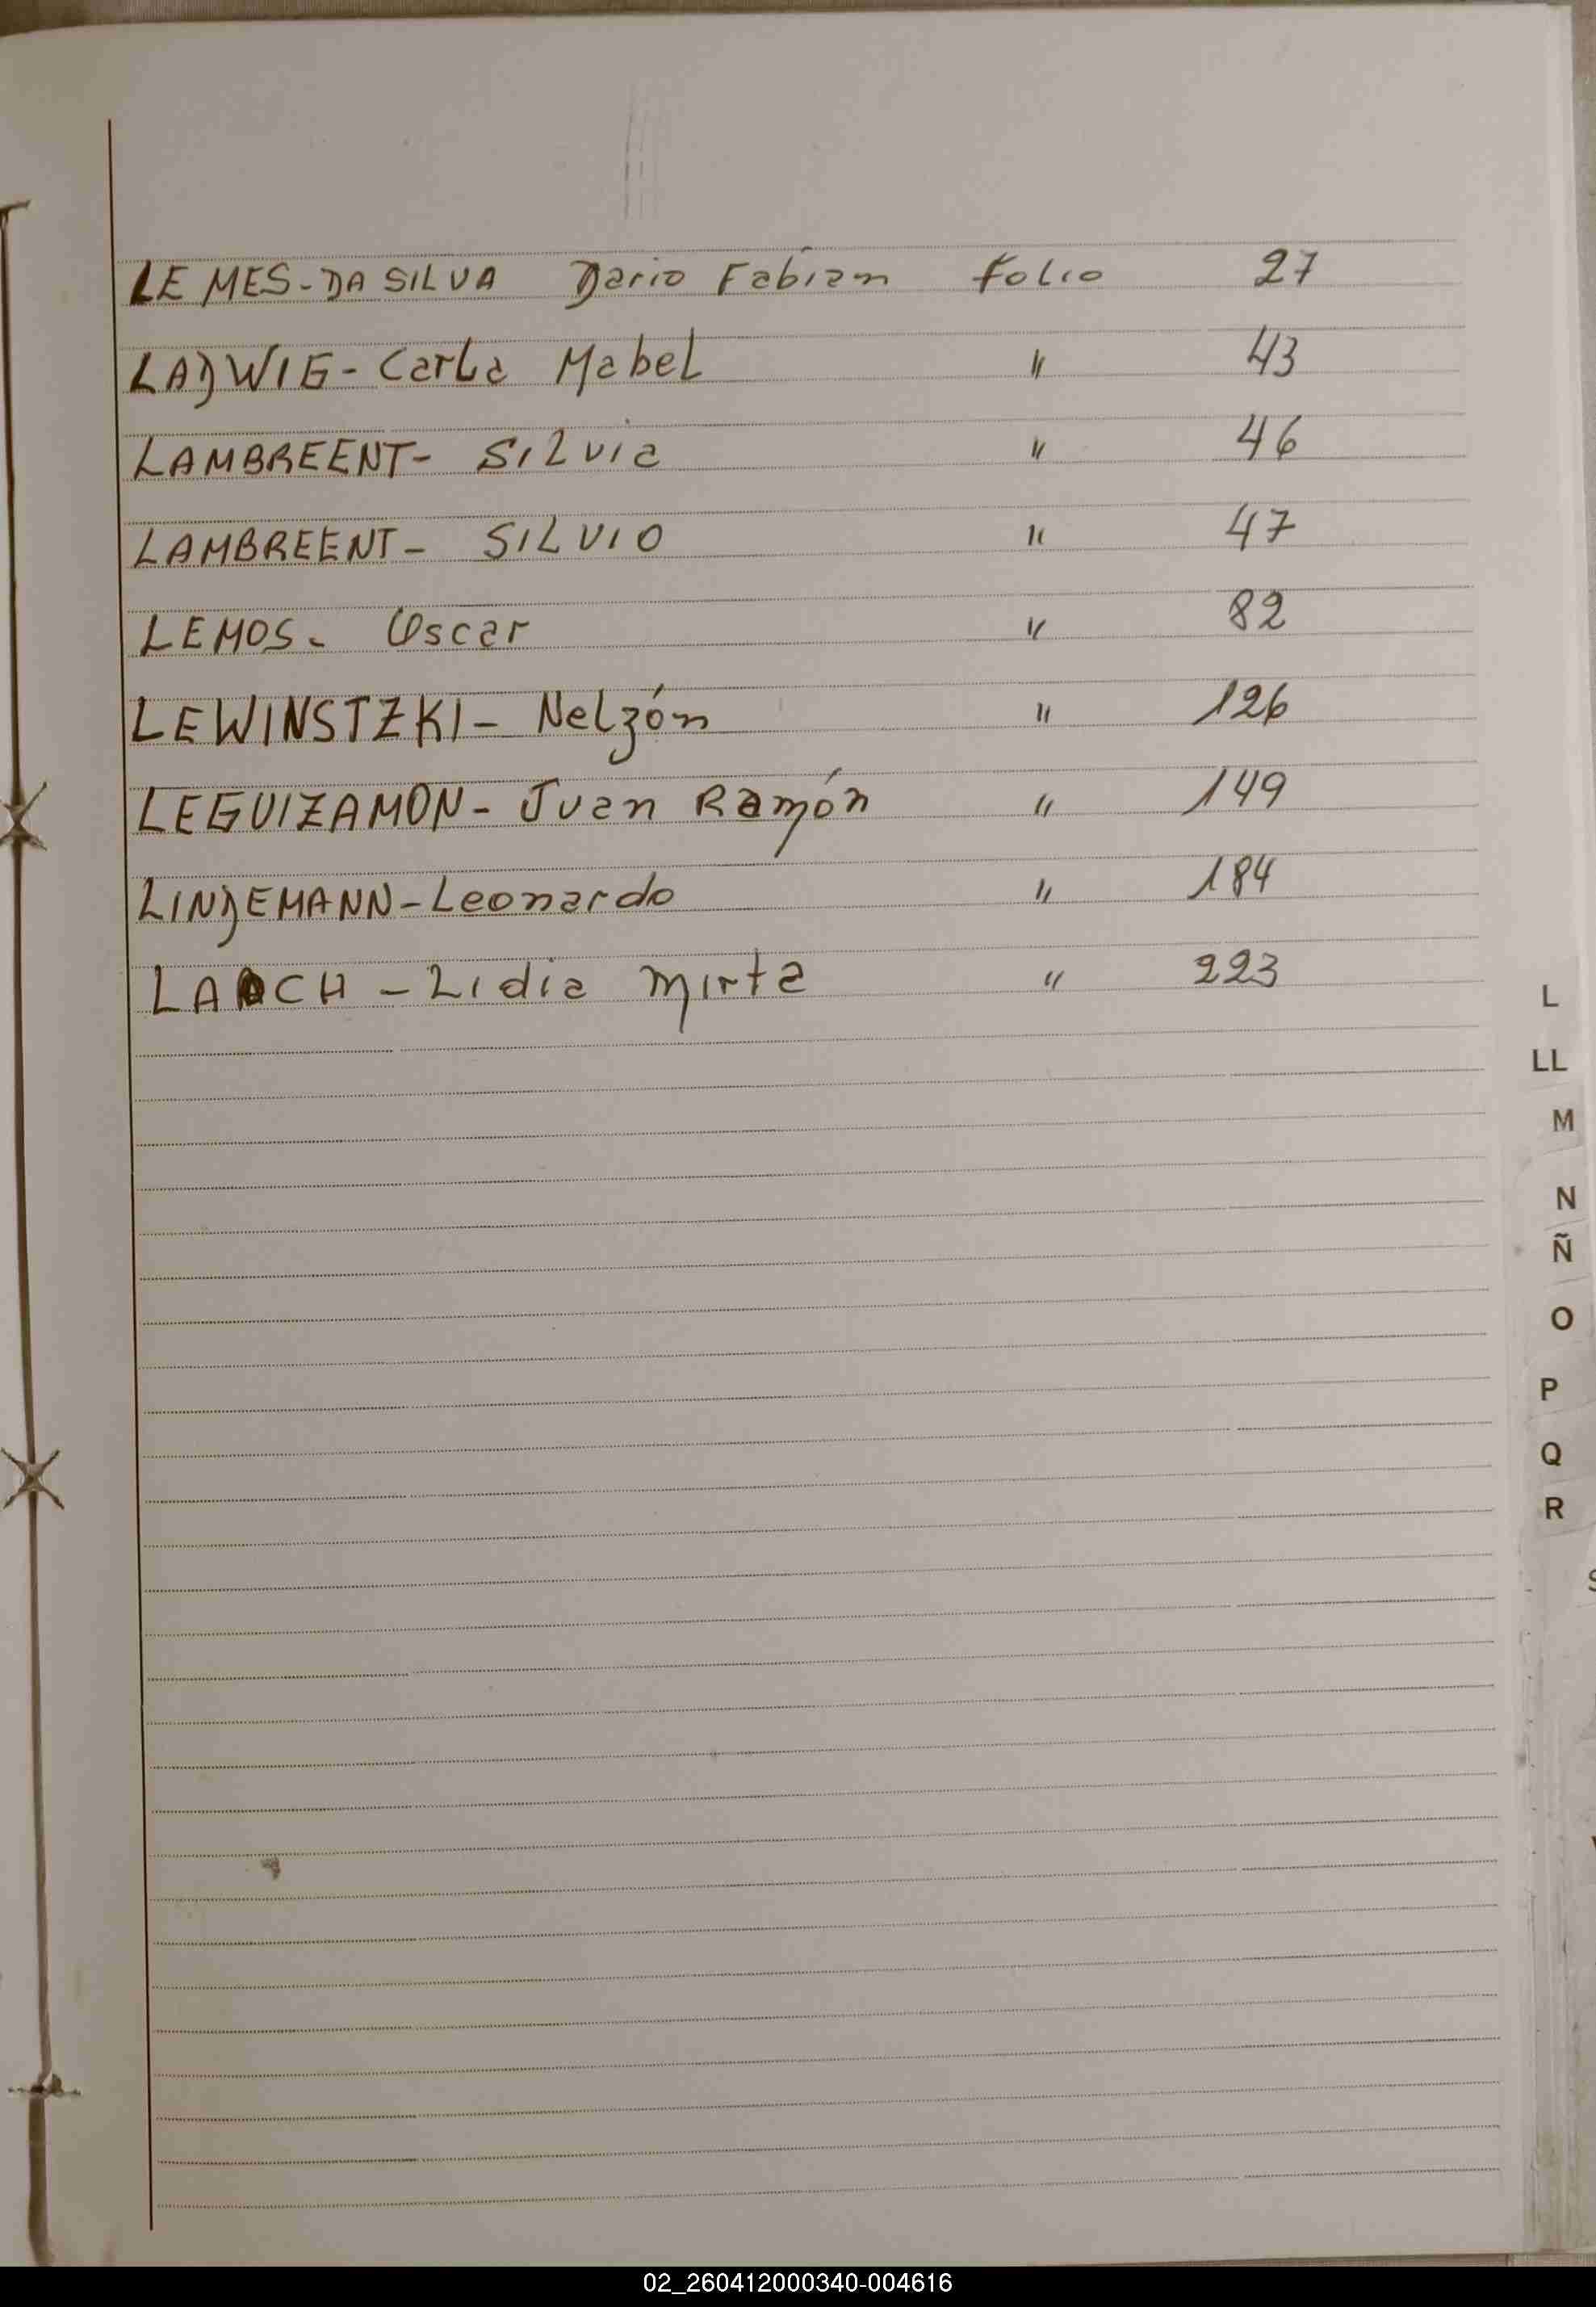 LEMES-DA SILVA Dario Fabián folio 27
LADWIG- Carla Mabel " 43
LAMBREENT- Silvia " 46
LAMBREENT- SILVIO " 47
LEMOS- Oscar " 82
LEWINSTZKI- Nelzón " 126
LEGUIZAMON- Juan Ramón " 149
LINDEMANN-Leonardo " 184
- Lidia Mirta " 223
L
LL
M
N
Ñ
O
P
Q
R
S
02_260412000340-004616